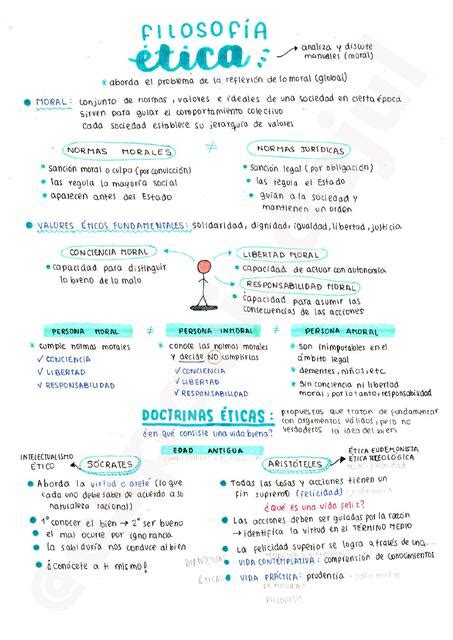 FILOSOFÍA
ética:
→ analiza y discute
manuales (moral)
* aborda el problema de la reflexión de lo moral (global)
MORAL: conjunto de normas, valores e ideales de una sociedad en cierta época
sirven para guiar el comportamiento colectivo
cada sociedad establece su jerarquía de valores
NORMAS MORALES ≠ NORMAS JURÍDICAS
• sanción moral o culpa (por convicción)
• las regula la mayoría social
• aparecen antes del Estado
• sanción legal (por obligación)
• las regula el Estado
• guían a la sociedad y
mantienen un orden
VALORES ÉTICOS FUNDAMENTALES: solidaridad, dignidad, igualdad, libertad, justicia
CONCIENCIA MORAL
• capacidad para distinguir
lo bueno de lo malo
LIBERTAD MORAL
• capacidad de actuar con autonomía
RESPONSABILIDAD MORAL
• capacidad para asumir las
consecuencias de las acciones
PERSONA MORAL ≠ PERSONA INMORAL ≠ PERSONA AMORAL
• cumple normas morales
✓ CONCIENCIA
✓ LIBERTAD
✓ RESPONSABILIDAD
• conoce las normas morales
y decide NO cumplirlas
✓ CONCIENCIA
✓ LIBERTAD
✓ RESPONSABILIDAD
• son inimputables en el
ámbito legal
• dementes, niños, etc
• sin conciencia ni libertad
moral; por lo tanto, responsabilidad
DOCTRINAS ÉTICAS:
¿en qué consiste una vida buena?
propuestas que tratan de fundamentar
con argumentos válidos, pero no
verdaderos la idea del bien
EDAD ANTIGUA
INTELECTUALISMO
ÉTICO
SÓCRATES
• Aborda la virtud o areté (lo que
cada uno debe saber de acuerdo a su
naturaleza racional)
• 1º conocer el bien → 2º ser bueno
• el mal ocurre por ignorancia
• la sabiduría nos conduce al bien
• ¡conócete a ti mismo!
ARISTÓTELES
ÉTICA EUDEMONISTA
ÉTICA TELEOLÓGICA
• Todas las cosas y acciones tienen un
fin supremo (felicidad)
¿Qué es una vida feliz?
• Las acciones deben ser guiadas por la razón
→ identifica la virtud en el TÉRMINO MEDIO
• La felicidad superior se logra a través de una...
• VIDA CONTEMPLATIVA: comprensión de conocimientos
• VIDA PRÁCTICA: prudencia